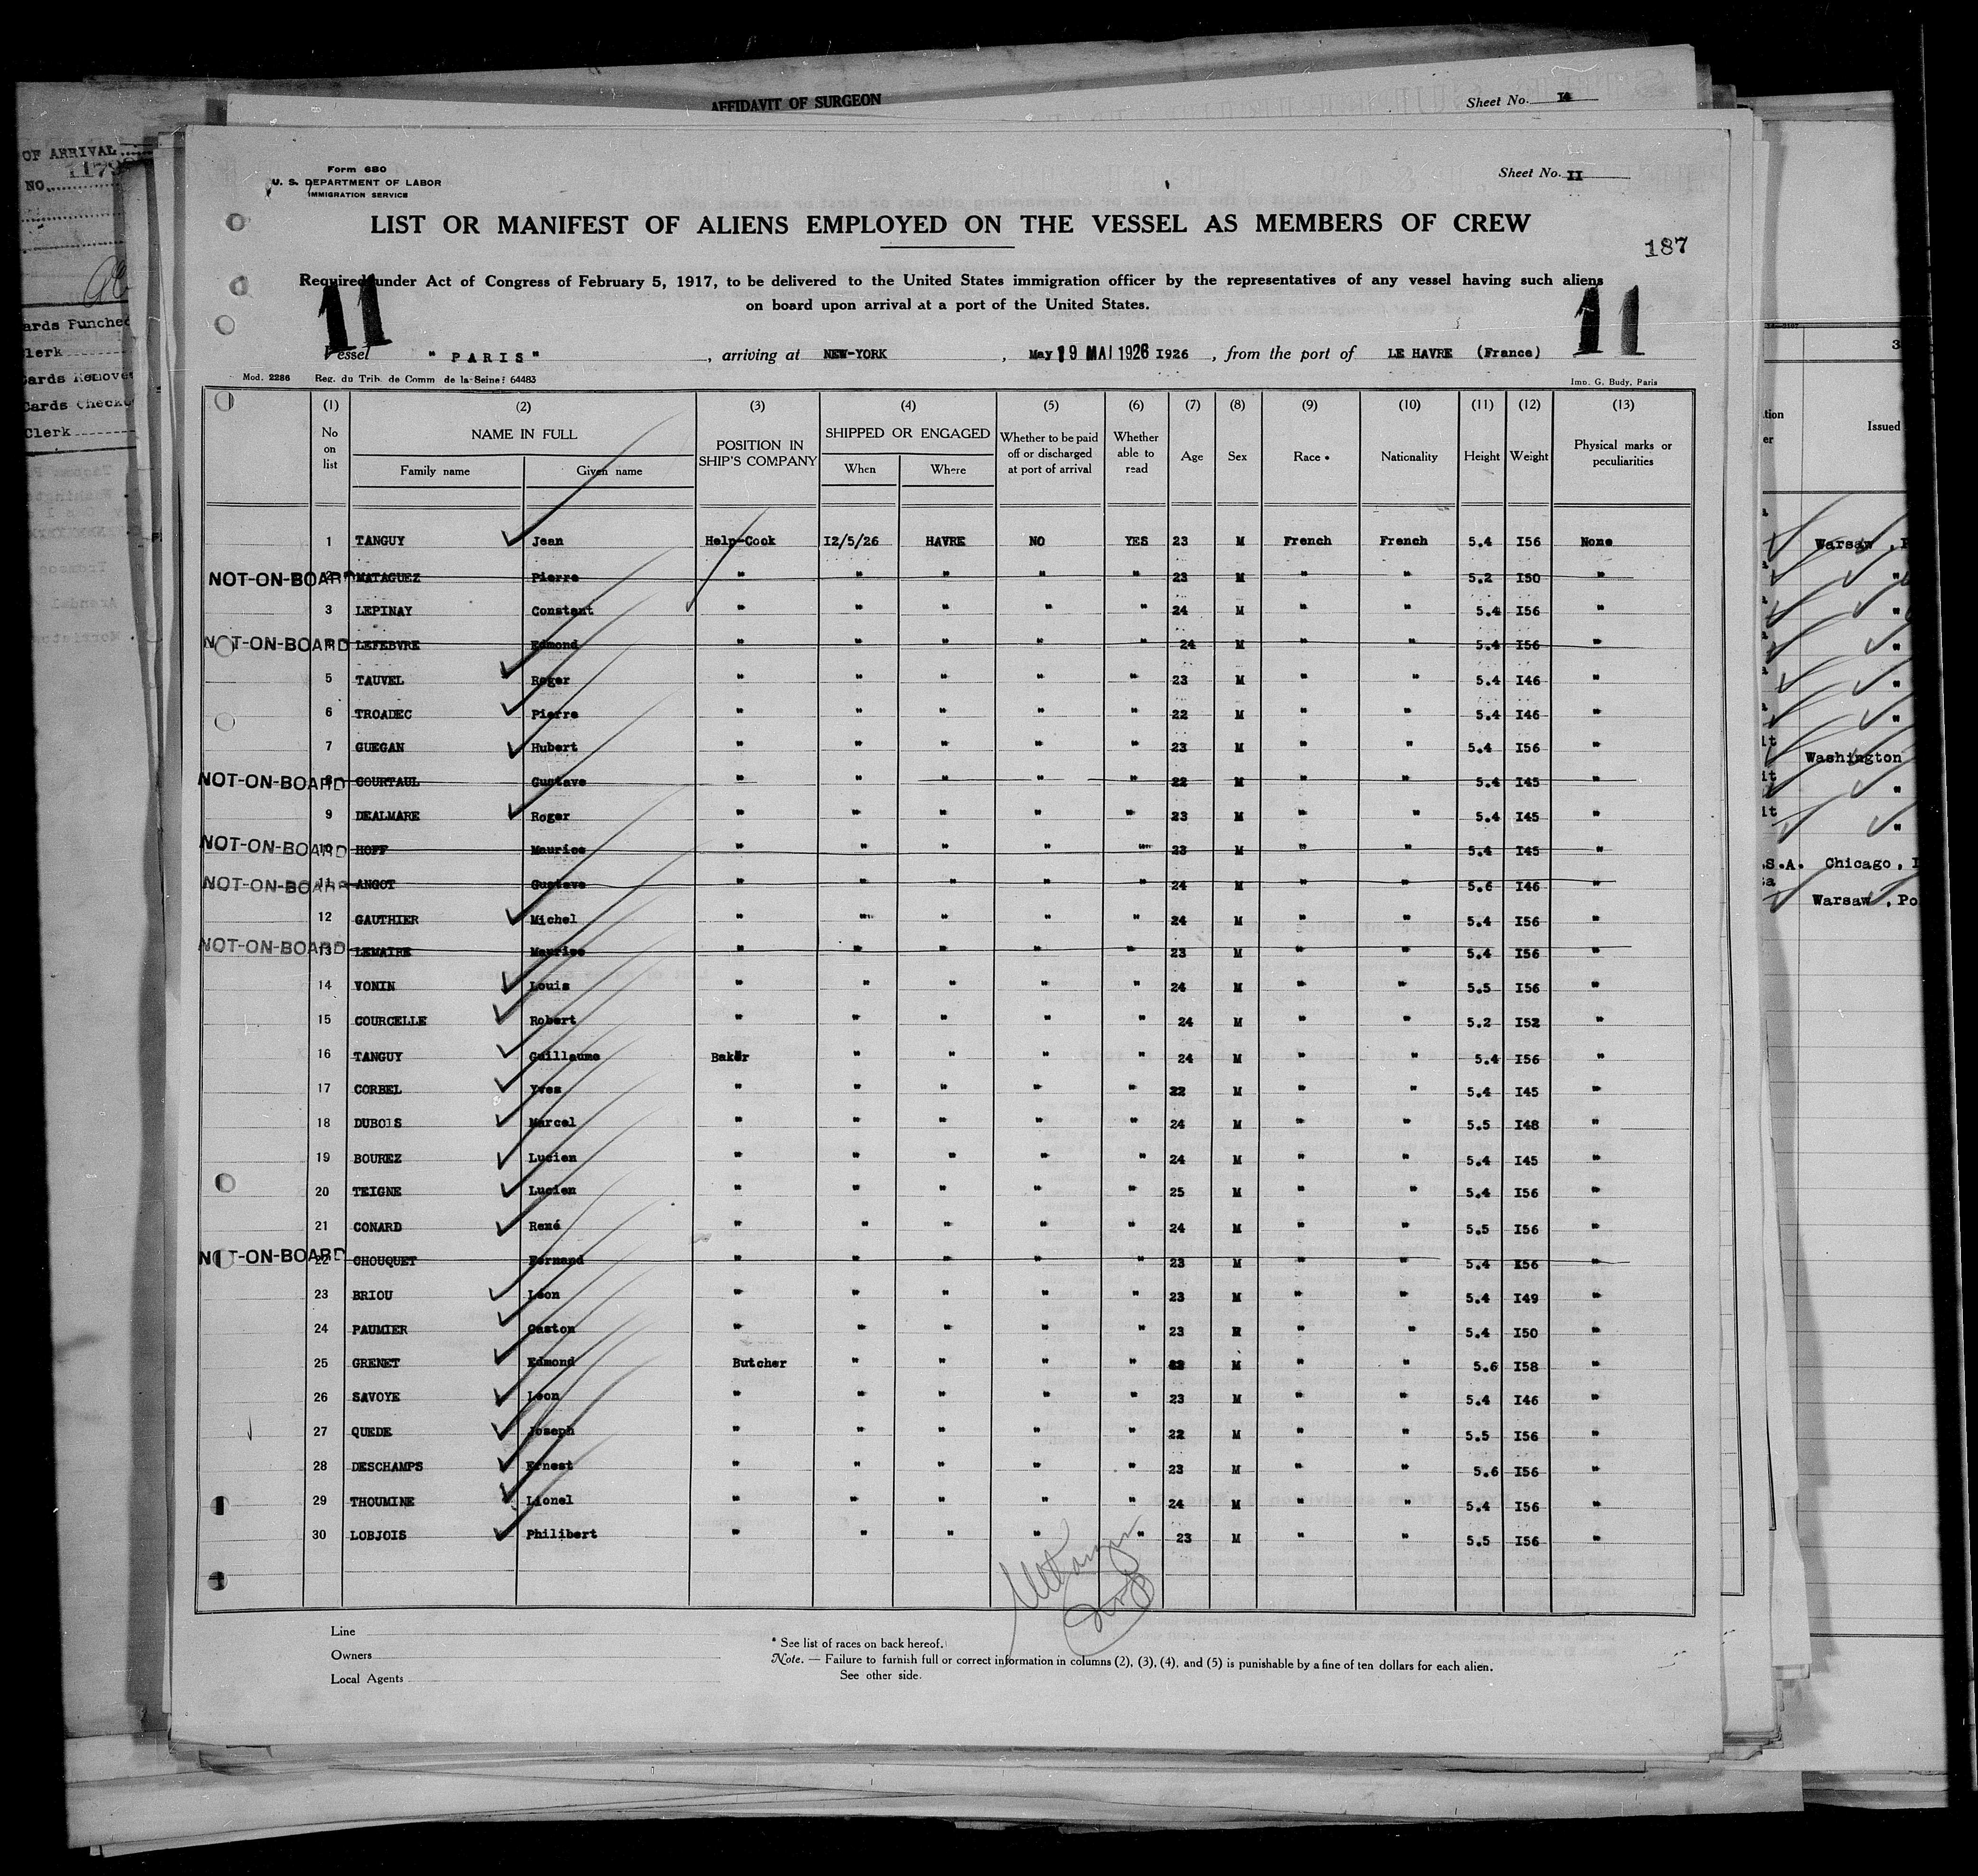 AFFIDAVIT OF SURGEON
Sheet No.
OF ARRIVAL
NO. 1179
ards Punched
lerk
ards Remove
Cards Check
Clerk
Form 680
U. S. DEPARTMENT OF LABOR
IMMIGRATION SERVICE
Sheet No. II
LIST OR MANIFEST OF ALIENS EMPLOYED ON THE VESSEL AS MEMBERS OF CREW
187
Required under Act of Congress of February 5, 1917, to be delivered to the United States immigration officer by the representatives of any vessel having such aliens
on board upon arrival at a port of the United States.
11 11
Vessel "PARIS", arriving at NEW-YORK, May 19 MAI 1926 I926, from the port of LE HAVRE (France)
Mod. 2286 Reg. du Trib. de Comm de la Seine: 64483 Imp. G. Budy, Paris
(1) (2) (3) (4) (5) (6) (7) (8) (9) (10) (11) (12) (13)
No on list NAME IN FULL Family name Given name POSITION IN SHIP'S COMPANY SHIPPED OR ENGAGED When Where Whether to be paid off or discharged at port of arrival Whether able to read Age Sex Race • Nationality Height Weight Physical marks or peculiarities
1 TANGUY Jean Help-Cook I2/5/26 HAVRE NO YES 23 M French French 5.4 I56 None
NOT-ON-BOARD 2 MATAGUEZ Pierre " " " " " 23 M " " 5.2 I50 "
3 LEPINAY Constant " " " " " 24 M " " 5.4 I56 "
NOT-ON-BOARD LEFEBVRE Edmond " " " " " 24 M " " 5.4 I56 "
5 TAUVEL Roger " " " " " 23 M " " 5.4 I46 "
6 TROADEC Pierre " " " " " 22 M " " 5.4 I46 "
7 GUEGAN Hubert " " " " " 23 M " " 5.4 I56 "
NOT-ON-BOARD 8 COURTAUL Gustave " " " " " 22 M " " 5.4 I45 "
9 DEALMARE Roger " " " " " 23 M " " 5.4 I45 "
NOT-ON-BOARD 10 HOFF Maurice " " " " " 23 M " " 5.4 I45 "
NOT-ON-BOARD 11 ANGOT Gustave " " " " " 24 M " " 5.6 I46 "
12 GAUTHIER Michel " " " " " 24 M " " 5.4 I56 "
NOT-ON-BOARD 13 LEMAIRE Maurice " " " " " 23 M " " 5.4 I56 "
14 VONIN Louis " " " " " 24 M " " 5.5 I56 "
15 COURCELLE Robert " " " " " 24 M " " 5.2 I52 "
16 TANGUY Guillaume Baker " " " " 24 M " " 5.4 I56 "
17 CORBEL Yves " " " " " 22 M " " 5.4 I45 "
18 DUBOIS Marcel " " " " " 24 M " " 5.5 I48 "
19 BOUREZ Lucien " " " " " 24 M " " 5.4 I45 "
20 TEIGNE Lucien " " " " " 25 M " " 5.4 I56 "
21 CONARD René " " " " " 24 M " " 5.5 I56 "
NOT-ON-BOARD 22 CHOUQUET Fernand " " " " " 23 M " " 5.4 I56 "
23 BRIOU Léon " " " " " 23 M " " 5.4 I49 "
24 PAUMIER Gaston " " " " " 23 M " " 5.4 I50 "
25 GRENET Edmond Butcher " " " " 22 M " " 5.6 I58 "
26 SAVOYE Léon " " " " " 23 M " " 5.4 I46 "
27 QUEDE Joseph " " " " " 22 M " " 5.5 I56 "
28 DESCHAMPS Ernest " " " " " 23 M " " 5.6 I56 "
29 THOUMINE Lionel " " " " " 24 M " " 5.4 I56 "
30 LOBJOIS Philibert " " " " " 23 M " " 5.5 I56 "
Line
Owners
Local Agents
* See list of races on back hereof.
Note. — Failure to furnish full or correct information in columns (2), (3), (4), and (5) is punishable by a fine of ten dollars for each alien.
See other side.
3
tion
er
Issued
Warsaw, P
"
"
"
"
"
Washington
"
"
.S.A. Chicago, I
Warsaw, Po